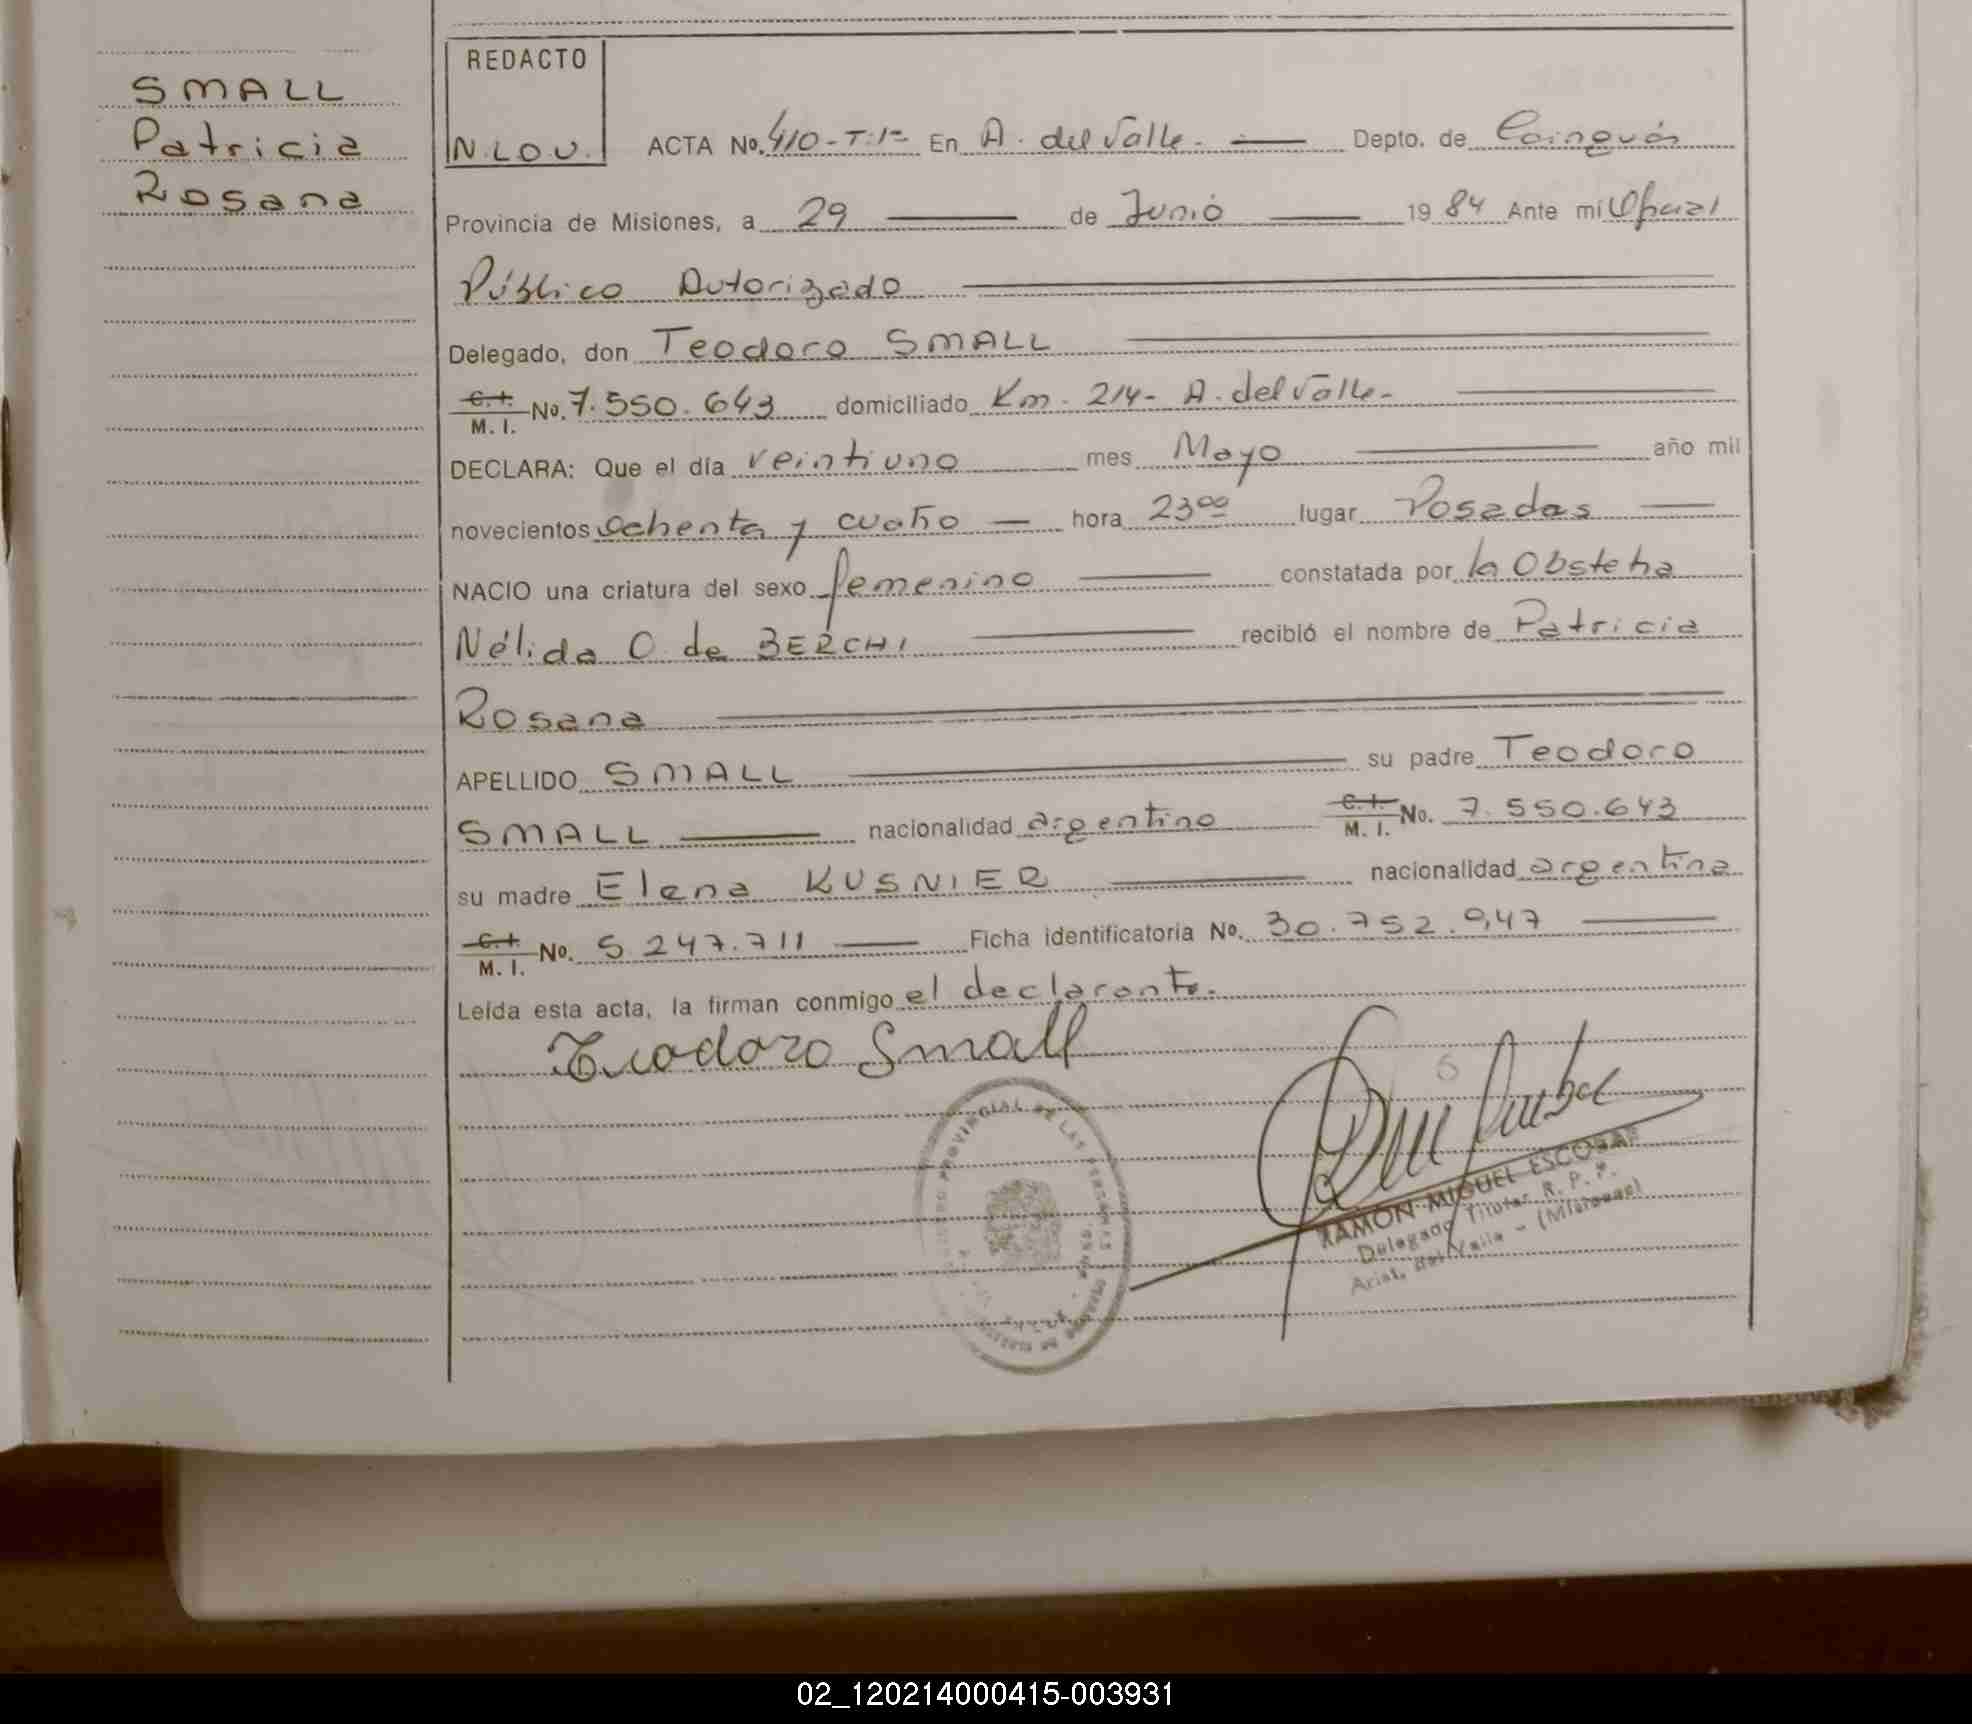 SMALL
Patricia
Rosana
REDACTO
N.LOU.
ACTA No. 410-T:1º En A. del Valle. — Depto. de Cainguás
Provincia de Misiones, a 29 — de Junio — 1984 Ante mi Oficial
Público Autorizado
Delegado, don Teodoro SMALL
C.I. M.I. No. 7.550.643 domiciliado Km. 214- A. del Valle.
DECLARA: Que el día veintiuno mes Mayo — año mil
novecientos ochenta y cuatro — hora 23⁰⁰ lugar Posadas —
NACIO una criatura del sexo femenino — constatada por la Obstetra
Nélida O. de BERCHI — recibió el nombre de Patricia
Rosana
APELLIDO SMALL — su padre Teodoro
SMALL — nacionalidad argentino C.I. M.I. No. 7.550.643
su madre Elena KUSNIER — nacionalidad argentina
C.I. M.I. No. 5.247.711 — Ficha identificatoria No. 30.752.947 —
Leída esta acta, la firman conmigo el declarante.
Teodoro Small
PROVINCIAL DE LAS PERSONAS
RAMON MIGUEL ESCOBAR
Delegado Titular R. P. P.
Arist. del Valle - (Misiones)
02_120214000415-003931